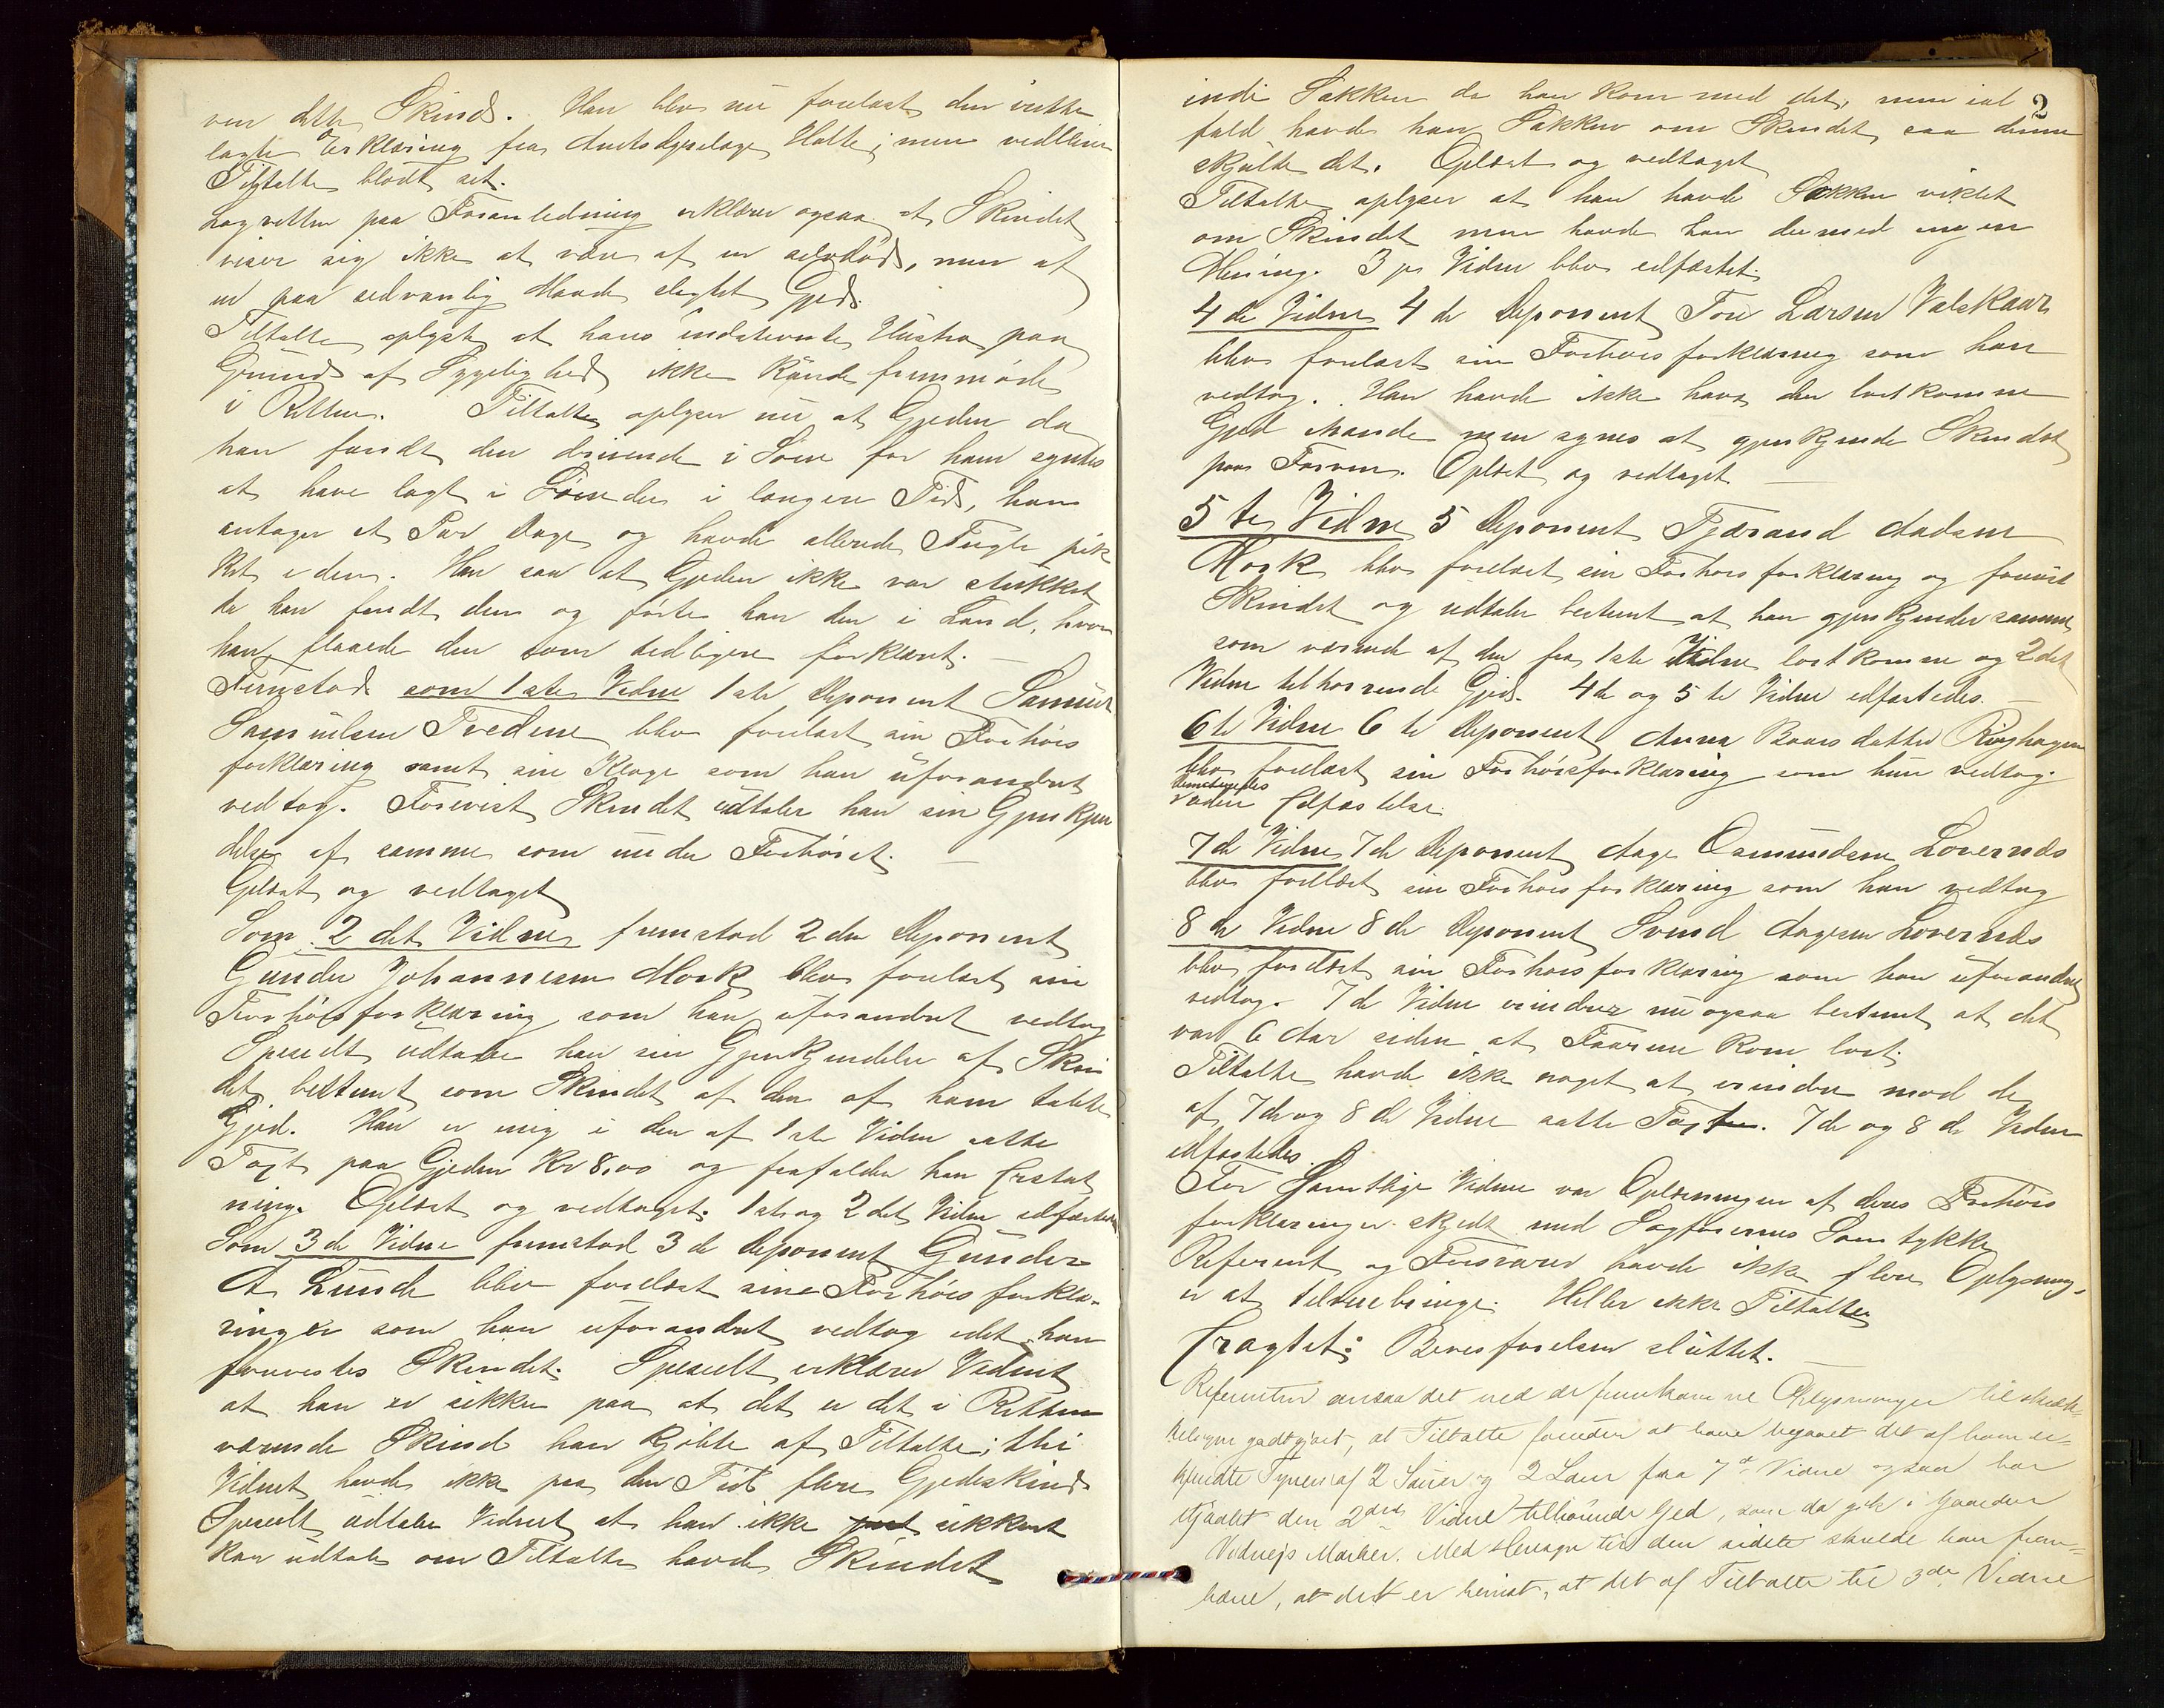 ven dette Skind. Han blev nu forelæst den irette
lagte Erklæring fra Amtsdyrlæge Holte; men vedblev
Tiltalte blodt set.
Lagretten paa Foranledning erklærer ogsaa at Skindet
viser sig ikke at være af en selvdød, men af
en paa sedvanlig Maade slagtet Gjed.
Tiltalte oplyste at hans indstevnte Hustru paa
Grund af Sygelighed ikke kunde fremmøde
i Retten. Tiltalte oplyser nu at Gjeden da
han fandt den drivende i Søen for ham syntes
at have lagt i Søen der i længere Tid, han
antager et Par Dage og havde allerede Fugle pik
ket i den. Han saa at Gjeden ikke var stukket
da han fandt den og førte han den i Land, hvor
han flaaede den som tidligere forklaret. —
Fremstod som 1ste Vidne 1ste Deponent Samuel
Samuelsen Tredene blev forelæst sin Forhørs
forklaring samt sin Klage som han uforandret
vedtog. Forevist Skindet udtaler han sin Gjenkjen
delse af samme som under Forhøret. —
Oplæst og vedtaget
Som 2det Vidne fremstod 2den Deponent
Gunder Johannesen Mork blev forelæst sin
Forhørsforklaring som han uforandret vedtog
Specielt udtaler han sin Gjenkjendelse af Skin
det bestemt som Skindet af den af ham tabte
Gjed. Han er enig i den af 1ste Vidne satte
Taxt paa Gjeden Kr 8,00 og frafalder han Erstat
ning. Oplæst og vedtaget. 1ste og 2det Vidne edfæstedes
Som 3de Vidne fremstod 3de Deponent Gunder
A Lunde blev forelæst sine Forhørs forkla-
ringer som han uforandret vedtog idet han
forevistes Skindet. Specielt erklærer Vidnet
at han er sikker paa at det er det i Retten
værende Skind han kjøbte af Tiltalte; thi
Vidnet havde ikke paa den Tid flere Gjedeskind
Specielt udtaler Vidnet at han ikke sikkert
kan udtale om Tiltalte havde Skindet
2
indi Sækken da han kom med det, men ial
fald havde han Sækken om Skindet saa denne
skjulte det. Oplæst og vedtaget
Tiltalte oplyser at han havde Sækken viklet
om Skindet men havde han dermed ingen
Mening. 3je Vidne blev edfæstet.
4de Vidne 4de Deponent Tore Larsen Valskaar
blev forelæst sin Forhørsforklaring som han
vedtog. Han havde ikke havt den bortkomne
Gjed ihænde men synes at gjenkjende Skindet
paa Farven. Oplæst og vedtaget. —
5te Vidne 5 Deponent Tjærand Aadsen
Mork blev forelæst sin Forhørsforklaring og forevist
Skindet og udtaler bestemt at han gjenkjender samme
som værende af den fra 1ste Vidne bortkomne og 2det
Vidne tilhørende Gjed. 4de og 5te Vidne edfæstedes. —
6te Vidne 6te Deponent Anna Baardsdatter Ringhagen
blev forelæst sin Forhørsforklaring som hun vedtog.
Dimiteredes
uden Edfæstelse.
7de Vidne 7de Deponent Aage Osmundsen Lovernæs
blev forelæst sin Forhørsforklaring som han vedtog
8de Vidne 8de Deponent Svend Aagesen Lovernæs
blev forelæst sin Forhørsforklaring som han uforandret
vedtog. 7de Vidne erindrer nu ogsaa bestemt at det
var 6 Aar siden at Faarene kom bort.
Tiltalte havde ikke noget at erindre mod de
af 7de og 8de Vidne satte Taxter. 7de og 8de Vidne
edfæstedes.
For Samtlige Vidne var Oplæsningen af deres Forhørs
forklaringer skjedt med Sagførernes Samtykke
Referent og Forsvarer havde ikke flere Oplysning-
er at tilveiebringe. Heller ikke Tiltalte
Eragtet: Bevisførelsen sluttet. —
Referenten ansaa det ved de fremkomne Oplysninger tilstræk-
keligen godtgjort, at Tiltalte foruden at have begaaet det af ham be-
kjendte Tyveri af 2 Sauer og 2 Lam fra 7de Vidne ogsaa har
stjaalet den 2det Vidne tilhørende Gjed, som da gik i Gaarden
Marker. Med Hensyn til den sidste skulde han frem-
hæve, at det er bevist, at det af Tiltalte til 3die Vidne